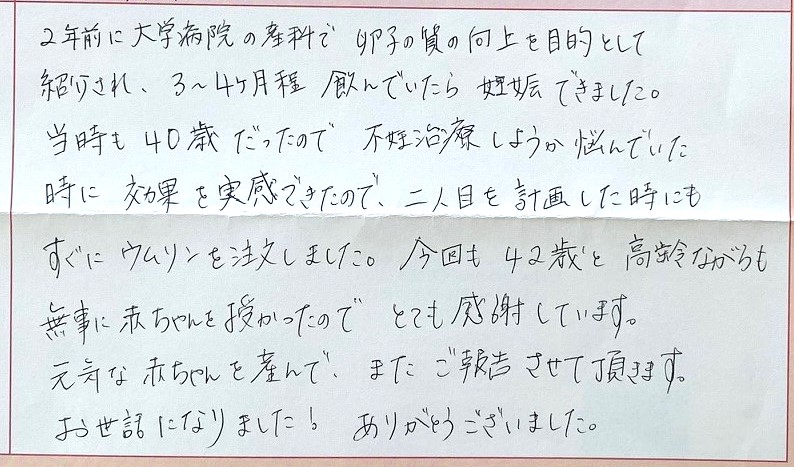 2年前に大学病院の産科で 卵子の質の向上を目的として
紹介され、3〜4ヶ月程 飲んでいたら 妊娠できました。
当時も 40歳 だったので 不妊治療 しようか悩んでいた
時に 効果を実感できたので、二人目を計画した時にも
すぐに ウムリンを注文しました。今回も 42歳と 高齢ながらも
無事に赤ちゃんを授かったので とても感謝しています。
元気な赤ちゃんを産んで、また ご報告させて頂きます。
お世話になりました! ありがとうございました。